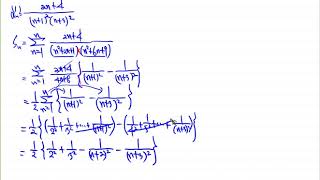 = \frac{2n+4}{(n+1)^2(n+3)^2}
S_n = \sum_{n=1}^{n} \frac{2n+4}{(n^2+2n+1)(n^2+6n+9)}
= \sum_{n=1}^{n} \frac{2n+4}{4n+8} \left\{ \frac{1}{(n+1)^2} - \frac{1}{(n+3)^2} \right\}
= \frac{1}{2} \sum_{n=1}^{n} \left\{ \frac{1}{(n+1)^2} - \frac{1}{(n+3)^2} \right\}
= \frac{1}{2} \left\{ \left( \frac{1}{2^2} + \frac{1}{3^2} + \cdots + \frac{1}{(n+1)^2} \right) - \left( \frac{1}{4^2} + \frac{1}{5^2} + \cdots + \frac{1}{(n+3)^2} \right) \right\}
= \frac{1}{2} \left\{ \frac{1}{2^2} + \frac{1}{3^2} - \frac{1}{(n+2)^2} - \frac{1}{(n+3)^2} \right\}